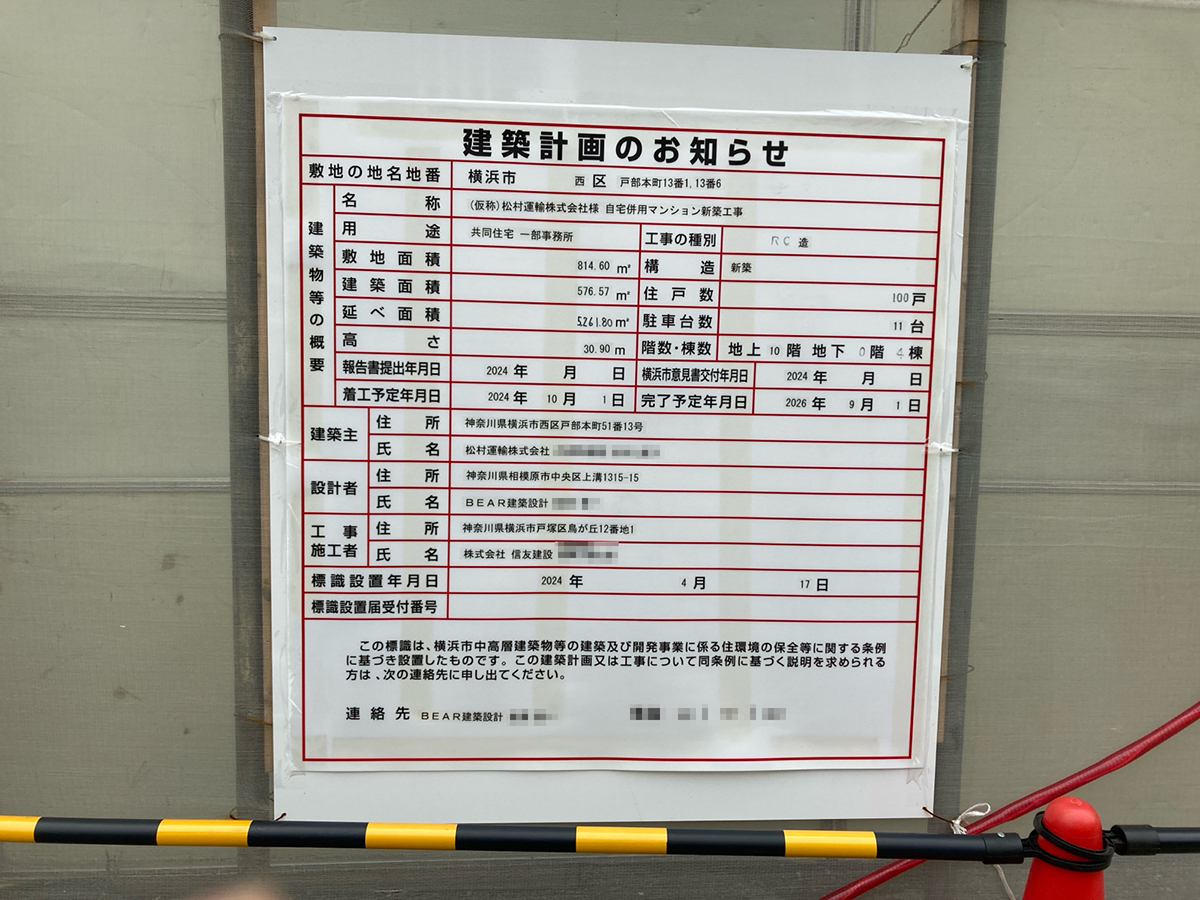 建築計画のお知らせ
敷地の地名地番 横浜市 西 区 戸部本町13番1,13番6
建築物等の概要
名称 (仮称)松村運輸株式会社様 自宅併用マンション新築工事
用途 共同住宅 一部事務所 工事の種別 RC 造
敷地面積 814.60 m² 構造 新築
建築面積 576.57 m² 住戸数 100戸
延べ面積 5261.80m² 駐車台数 11 台
高さ 30.90 m 階数・棟数 地上 10 階 地下 0 階 棟
報告書提出年月日 2024 年 月 日 横浜市意見書交付年月日 2024 年 月 日
着工予定年月日 2024 年 10 月 1日 完了予定年月日 2026 年 9 月 1 日
建築主 住所 神奈川県横浜市西区戸部本町51番13号
氏名 松村運輸株式会社
設計者 住所 神奈川県相模原市中央区上溝1315-15
氏名 BEAR建築設計
工事施工者 住所 神奈川県横浜市戸塚区鳥が丘12番地1
氏名 株式会社 信友建設
標識設置年月日 2024 年 4 月 17 日
標識設置届受付番号
この標識は、横浜市中高層建築物等の建築及び開発事業に係る住環境の保全等に関する条例
に基づき設置したものです。この建築計画又は工事について同条例に基づく説明を求められる
方は、次の連絡先に申し出てください。
連絡先 BEAR建築設計